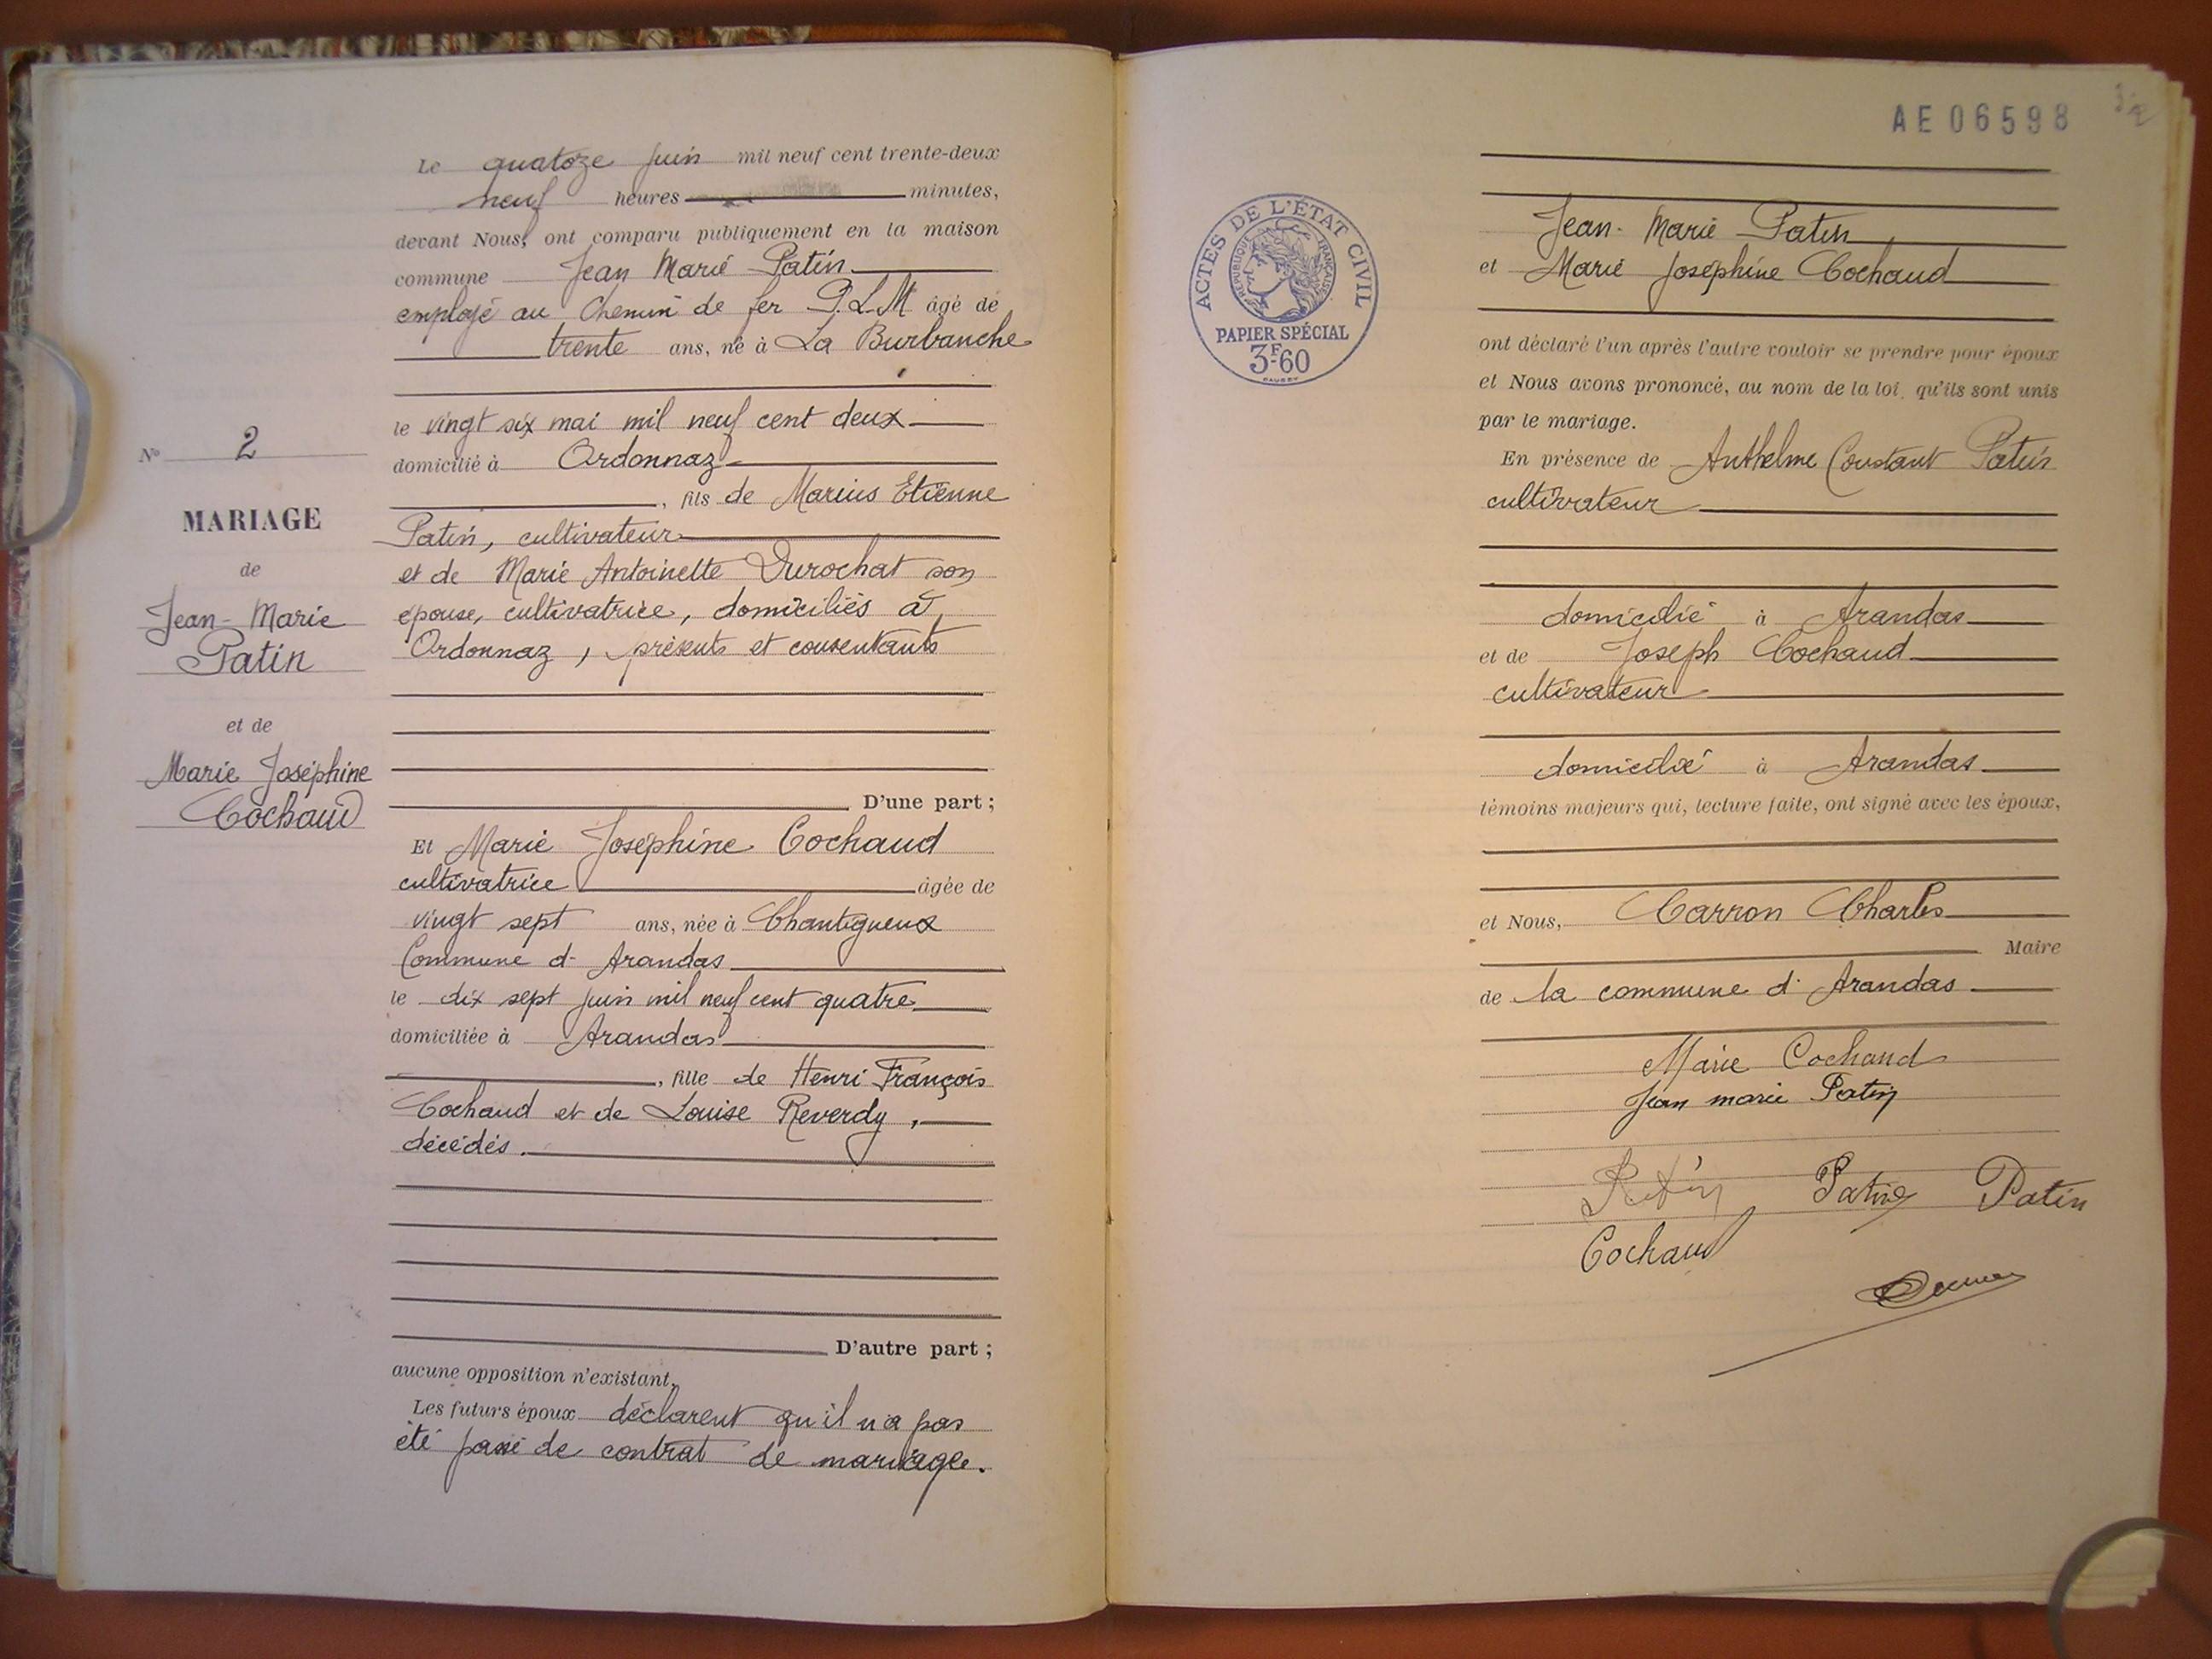 Le quatoze juin mil neuf cent trente-deux
neuf heures minutes,
devant Nous, ont comparu publiquement en la maison
commune Jean Marie Patin
employé au Chemin de fer P.L.M âgé de
trente ans, né à La Burbanche
le vingt six mai mil neuf cent deux
domicilié à Ordonnaz
, fils de Marius Etienne
Patin, cultivateur
et de Marie Antoinette Durochat son
épouse, cultivatrice, domiciliés à
Ordonnaz, présents et consentants
D'une part ;
Et Marie Joséphine Cochaud
cultivatrice âgée de
vingt sept ans, née à Chantigneux
Commune d'Arandas
le dix sept juin mil neuf cent quatre
domiciliée à Arandas
, fille de Henri François
Cochaud et de Louise Reverdy,
décédés.
D'autre part ;
aucune opposition n'existant,
Les futurs époux déclarent qu'il n'a pas
été passé de contrat de mariage.
No 2
MARIAGE
de
Jean-Marie
Patin
et de
Marie Joséphine
Cochaud
AE06598
ACTES DE L'ÉTAT CIVIL
RÉPUBLIQUE FRANÇAISE
PAPIER SPÉCIAL
3F60
Jean-Marie Patin
et Marie Joséphine Cochaud
ont déclaré l'un après l'autre vouloir se prendre pour époux
et Nous avons prononcé, au nom de la loi, qu'ils sont unis
par le mariage.
En présence de Anthelme Constant Patin
cultivateur
domicilié à Arandas
et de Joseph Cochaud
cultivateur
domicilié à Arandas
témoins majeurs qui, lecture faite, ont signé avec les époux,
et Nous, Carron Charles
Maire
de la commune d'Arandas
Marie Cochaud
Jean marie Patin
Patin Patin
Cochaud